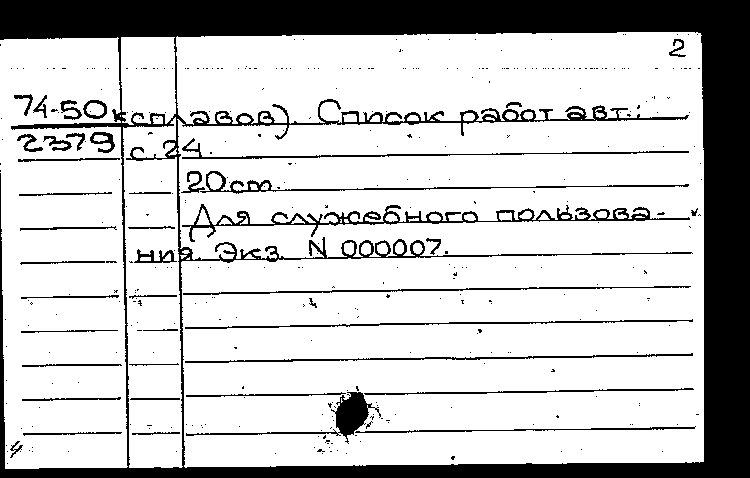 2
74-50
ксплавов). Список работ авт.:
2379
с.24.
20cm.
Для служебного пользова-
ния. Экз. N 000007.
4